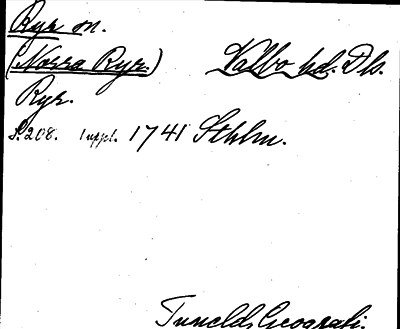 Ryr sn.
(Norra Ryr.) Valbo hd. Dls.
Ryr.
S. 208. 1 uppl. 1741 Sthlm.
Tunelds Geografi.